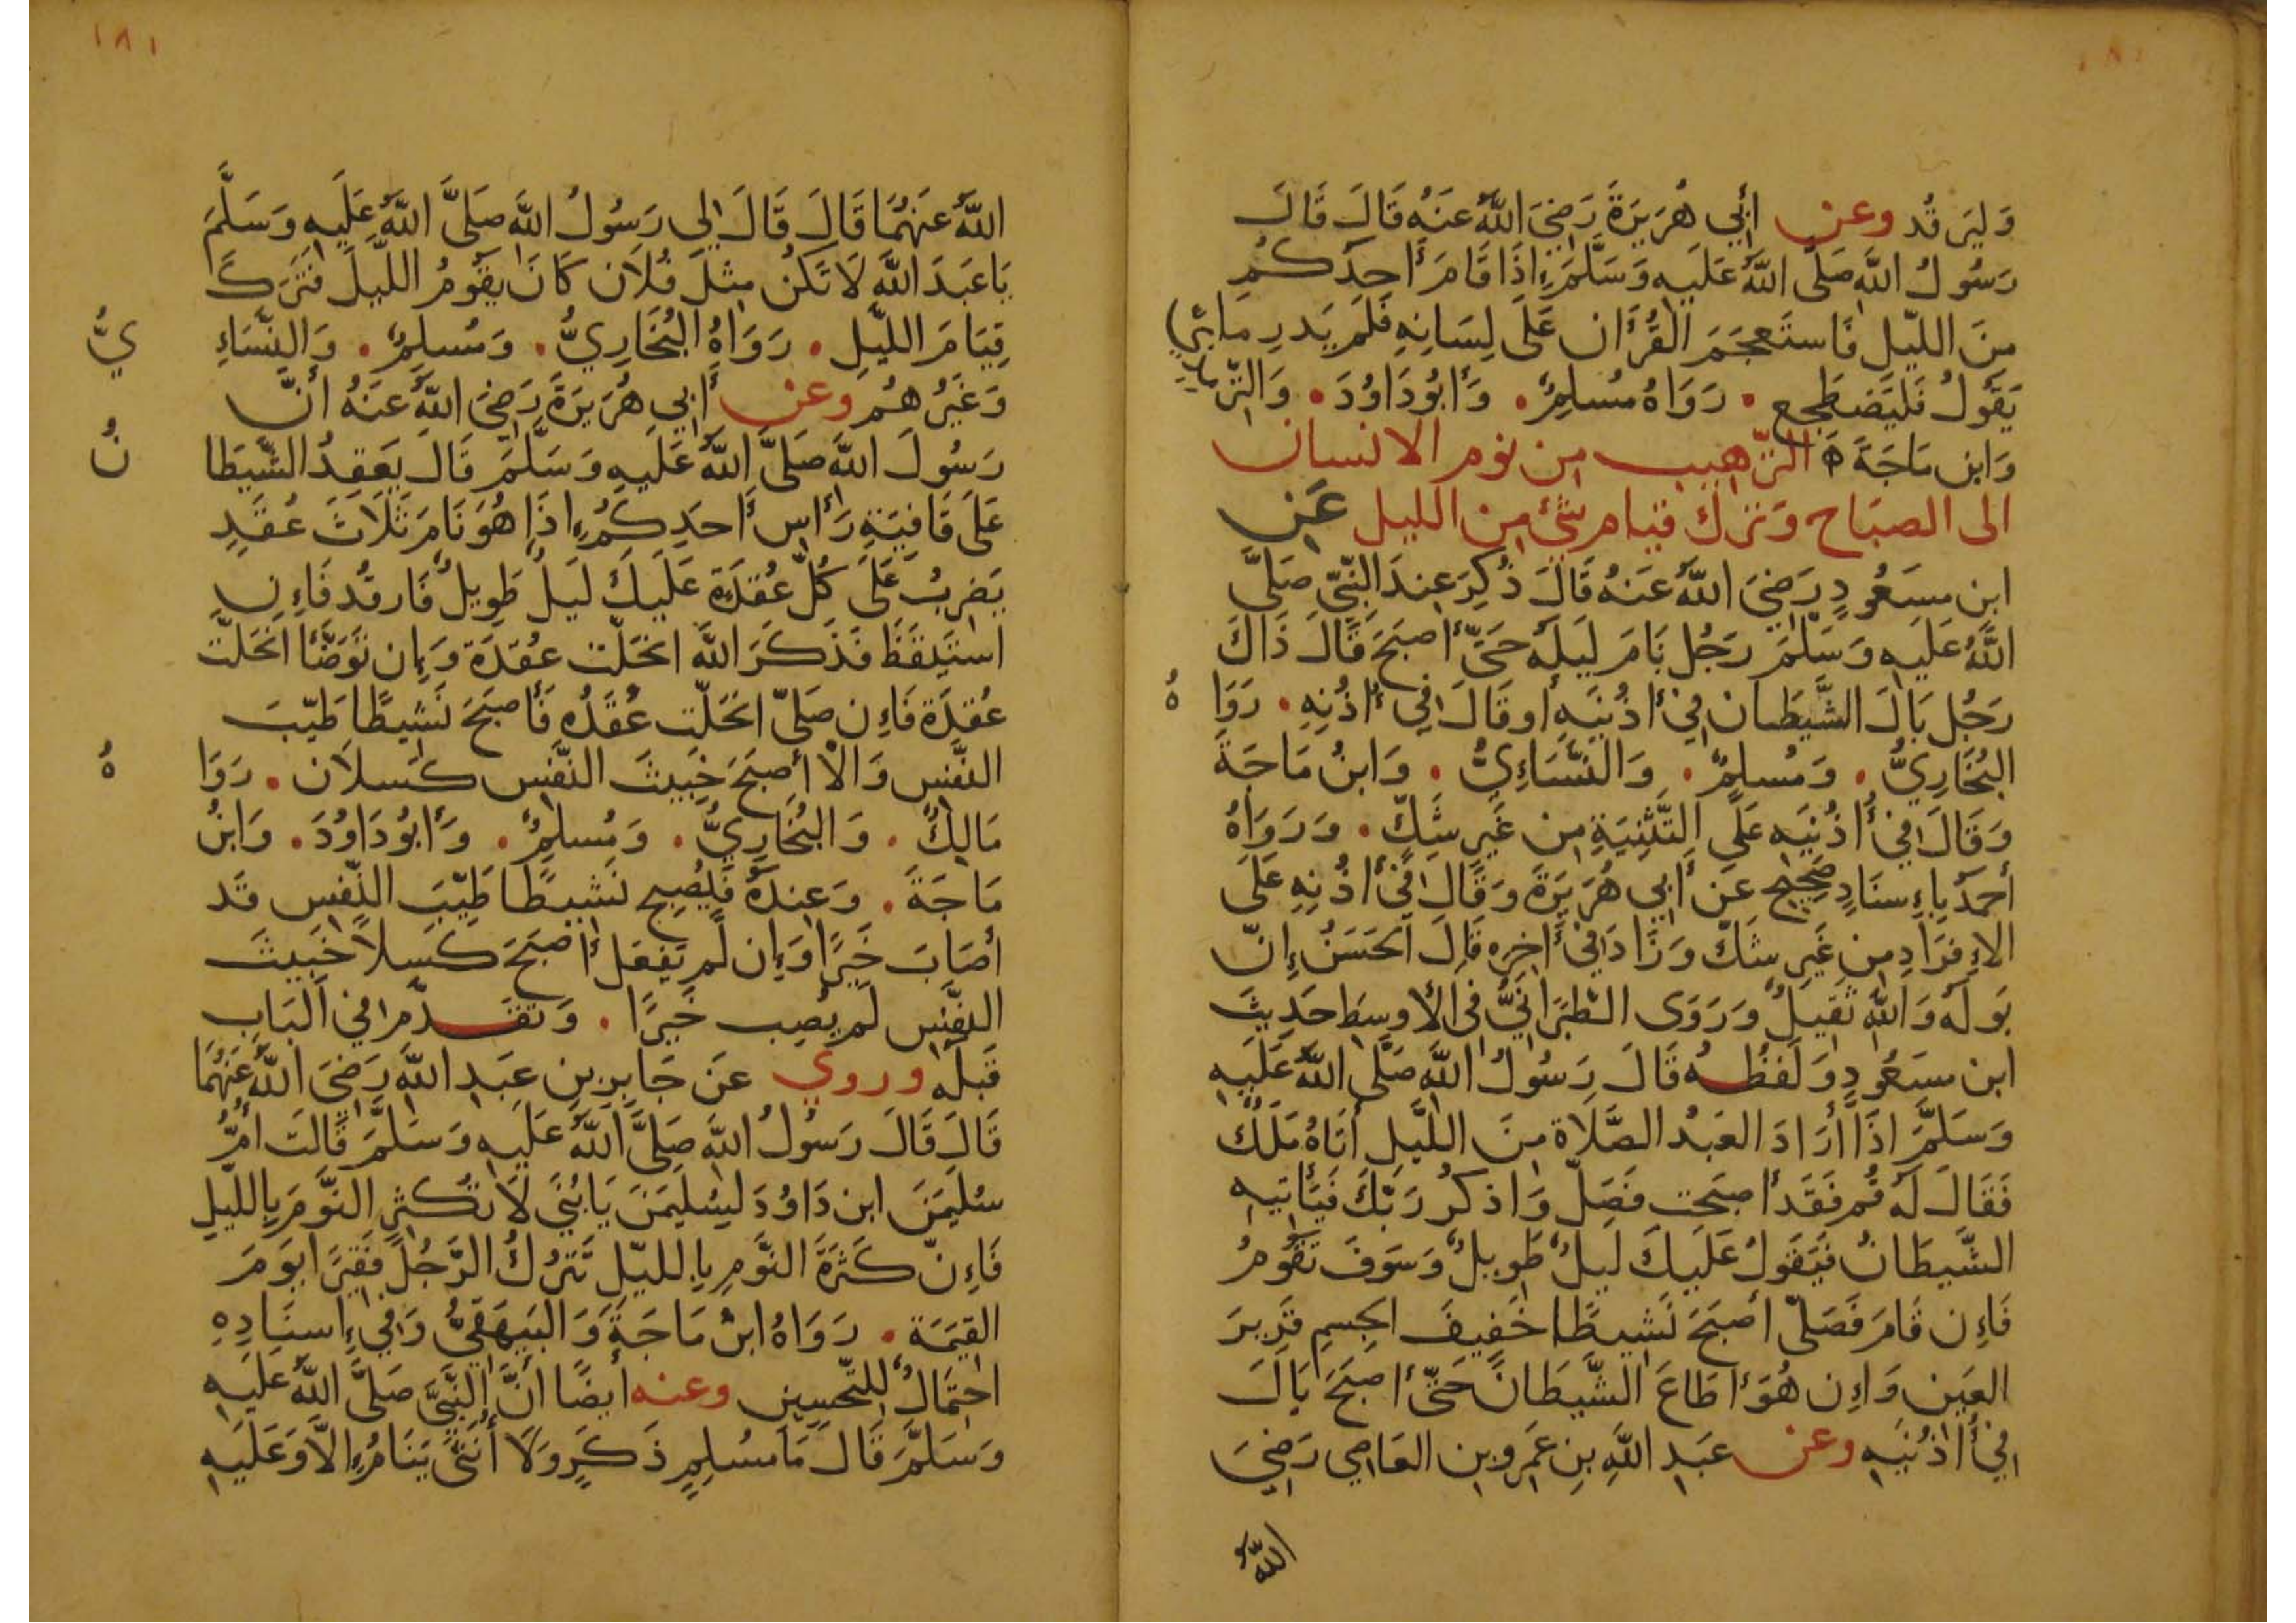 ١٨٠
وَليَرقُد وعن أَبي هُرَيرَةَ رَضِيَ اللَّهُ عَنهُ قَالَ قَالَ
رَسُولُ اللَّهِ صَلَّى اللَّهُ عَلَيهِ وَسَلَّمَ إِذَا قَامَ أَحَدُكُم
مِنَ اللَّيلِ فَاستَعجَمَ القُرأَان عَلَى لِسَانِهِ فَلَم يَدرِ مَا
يَقُولُ فَليَضطَجِع . رَوَاهُ مُسلِمٌ . وَأَبُودَاوُدَ . وَالتِّرمِذِي
وَابن مَاجَةَ ه التّرهيب من نوم الانسان
الى الصبَاح وَترك قيام شئ من الليل عَن
ابنِ مسَعُودٍ رَضِيَ اللَّهُ عَنهُ قَالَ ذُكِرَ عِندَ النَّبِيّ صَلَّى
اللَّهُ عَلَيهِ وَسَلَّمَ رَجُل نَامَ لَيلَه حَتَّى أَصبَحَ قَالَ ذَاكَ
رَجُل بَالَ الشَّيطَان فِي أُذُنَيهِ أَو قَالَ فِي أُذُنِهِ . رَوَا هُ
البُخَارِيُّ . وَمُسلِمٌ . وَالنَّسَاءِيُّ . وَابنُ مَاجَةَ
وَقَالَ فِي أُذُنَيهِ عَلَى التَّثنِيَةِ مِن غَيرِ شَكٍّ . وَرَوَاهُ
أحمَدُ بِإِسنَادٍ صَحِيحٍ عَن أَبِي هُرَيرَةَ وَقَالَ فِي أُذُنِهِ عَلَى
الإِفرَادِ مِن غَيرِ شَكّ وَزَادَ فِي أَخِرِه قَالَ الحَسَنُ إِنّ
بَولَهُ وَاللَّهِ ثَقِيلٌ وَرَوَى الطَّبَرَانِيُّ فى الأَوسَطِ حَدِيثَ
ابن مسَعُودٍ وَلَفظُه قَالَ رَسُولُ اللَّهِ صَلَّى اللَّهُ عَلَيهِ
وَسَلَّمَ إذَا أَرَادَ العَبدُ الصَّلَاة مِنَ اللَّيلِ أَتَاهُ مَلَكٌ
فَقَالَ لَهُ قُم فَقَد أَصبَحت فَصَلِّ وَاذكُر رَبَّكَ فَيَأتِيهِ
الشَّيطَانُ فَيَقُولُ عَلَيكَ لَيلٌ طَوِيلٌ وَسَوفَ تَقُومُ
فَإِن قَامَ فَصَلّى أَصبَحَ نَشِيطًا خَفِيفَ الجِسمِ قَرِيرَ
العَينِ وَإِن هُوَ أَطَاعَ الشَّيطَانَ حَتّى أَصبَحَ بَالَ
فِي أُذُنَيهِ وعن عَبدِ اللَّهِ بنِ عَمرِو بنِ العَاصِي رَضِيَ
اللَّهُ
١٨١
اللَّهُ عَنهُمَا قَالَ قَالَ لِي رَسُولُ اللَّهِ صَلَّى اللَّهُ عَلَيهِ وَسَلَّمَ
يَا عَبدَ اللَّهِ لَا تَكُن مِثلَ فُلَان كَانَ يَقُومُ اللَّيلَ فَتَرَكَ
قِيَامَ اللَّيلِ . رَوَاهُ البُخَارِيُّ . وَمُسلِمٌ . وَالنِّسَاءِ يُّ
وَغَيرُهُم وعن أَبِي هُرَيرَةَ رَضِيَ اللَّهُ عَنهُ أَنّ
رَسُولَ اللَّهِ صَلَّى اللَّهُ عَلَيهِ وَسَلَّمَ قَالَ يَعقِدُ الشَّيطَا نُ
عَلَى قَافِيَةِ رَأسِ أَحَدِكُم إِذَا هُوَ نَامَ ثَلَاثَ عُقَدٍ
يَضرِبُ عَلَى كُلّ عُقدَةٍ عَلَيكَ لَيلٌ طَوِيلٌ فَارقُد فَإِنِ
استَيقَظَ فَذَكَرَ اللَّهَ انحَلّت عُقدَة وَإِن تَوَضَّأَ انحَلّت
عُقدَة فَإِن صَلّى انحَلّت عُقَدُه فَأَصبَحَ نَشِيطًا طَيّبَ
النَّفسِ وَالّا أَصبَحَ خَبِيثَ النَّفسِ كَسلَان . رَوَا هُ
مَالِكٌ . وَالبُخَارِيُّ . وَمُسلِمٌ . وَأَبُودَاوُدَ . وَابنُ
مَاجَةَ . وَعِندَهُ فَيُصبِح نَشِيطًا طَيّبَ النَّفسِ قَد
أَصَابَ خَيرًا وَإِن لَم يَفعَل أَصبَحَ كَسلًا خَبِيثَ
النَّفسِ لَم يُصِب خَيرًا . وَتَقَدّم فِي البَابِ
قَبلَه وروي عَن جَابِرِ بنِ عَبدِ اللَّهِ رَضِيَ اللَّهُ عَنهُمَا
قَالَ قَالَ رَسُولُ اللَّهِ صَلَّى اللَّهُ عَلَيهِ وَسَلَّمَ قَالَت أُمُّ
سُلَيمَنَ ابن دَاوُدَ لِسُلَيمَنَ يَا بُنَيَّ لَا تُكثِرِ النَّومَ بِاللَّيلِ
فَإِنّ كَثرَةَ النَّومِ بِاللَّيلِ تَترُكُ الرَّجُلَ فَقِيرًا يَومَ
القِيَمَة . رَوَاهُ ابنُ مَاجَةَ وَالبَيهَقِيُّ وَفِي إِسنَادِهِ
احتِمَالٌ لِلتَّحسِين وعنه أَيضًا أَنَّ النَّبِيَّ صَلَّى اللَّهُ عَلَيهِ
وَسَلَّمَ قَالَ مَا مُسلِمٍ ذَكَرٍ وَلَا أُنثَى يَنَامُ إِلَّا وَعَلَيهِ